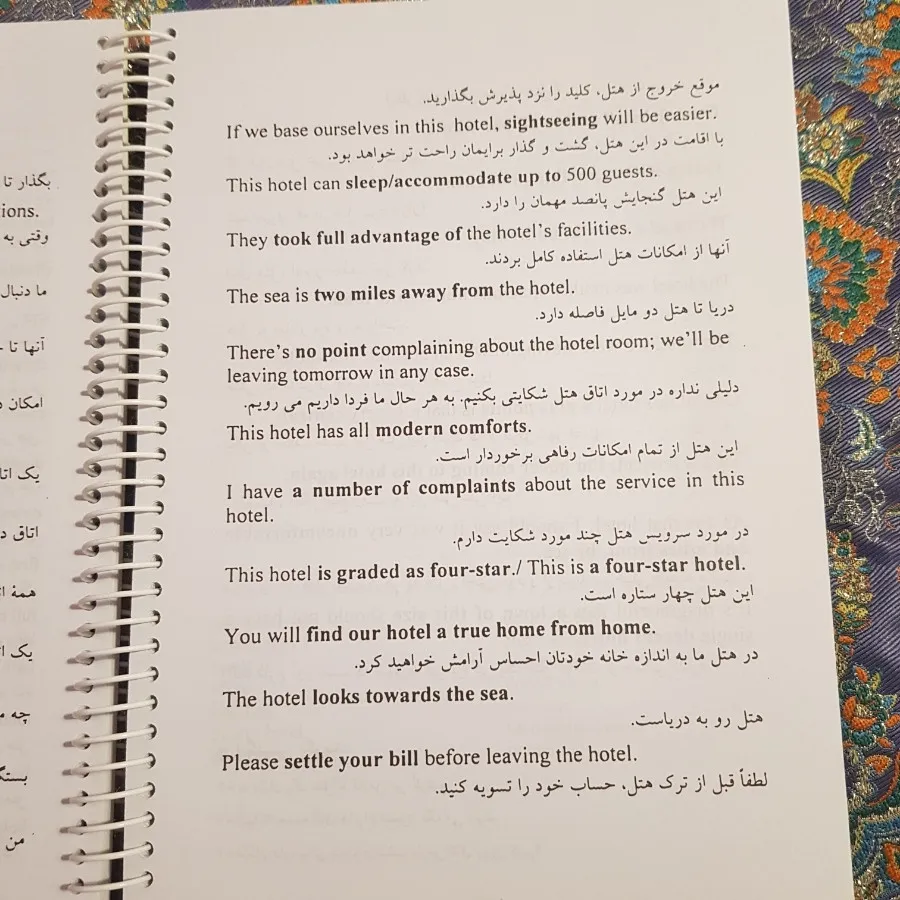 موقع خروج از هتل، کلید را نزد پذیرش بگذارید.
If we base ourselves in this hotel, sightseeing will be easier.
با اقامت در این هتل، گشت و گذار برایمان راحت تر خواهد بود.
This hotel can sleep/accommodate up to 500 guests.
این هتل گنجایش پانصد مهمان را دارد.
They took full advantage of the hotel's facilities.
آنها از امکانات هتل استفاده کامل بردند.
The sea is two miles away from the hotel.
دریا تا هتل دو مایل فاصله دارد.
There's no point complaining about the hotel room; we'll be
leaving tomorrow in any case.
دلیلی نداره در مورد اتاق هتل شکایتی بکنیم. به هر حال ما فردا داریم می رویم.
This hotel has all modern comforts.
این هتل از تمام امکانات رفاهی برخوردار است.
I have a number of complaints about the service in this
hotel.
در مورد سرویس هتل چند مورد شکایت دارم.
This hotel is graded as four-star./ This is a four-star hotel.
این هتل چهار ستاره است.
You will find our hotel a true home from home.
در هتل ما به اندازه خانه خودتان احساس آرامش خواهید کرد.
The hotel looks towards the sea.
هتل رو به دریاست.
Please settle your bill before leaving the hotel.
لطفاً قبل از ترک هتل، حساب خود را تسویه کنید.
بگذار تا
ions.
وقتی به
ما دنبال
آنها تا
امکان
یک اتا
اتاق د
همهٔ ا
یک ا
چه م
بستگ
من